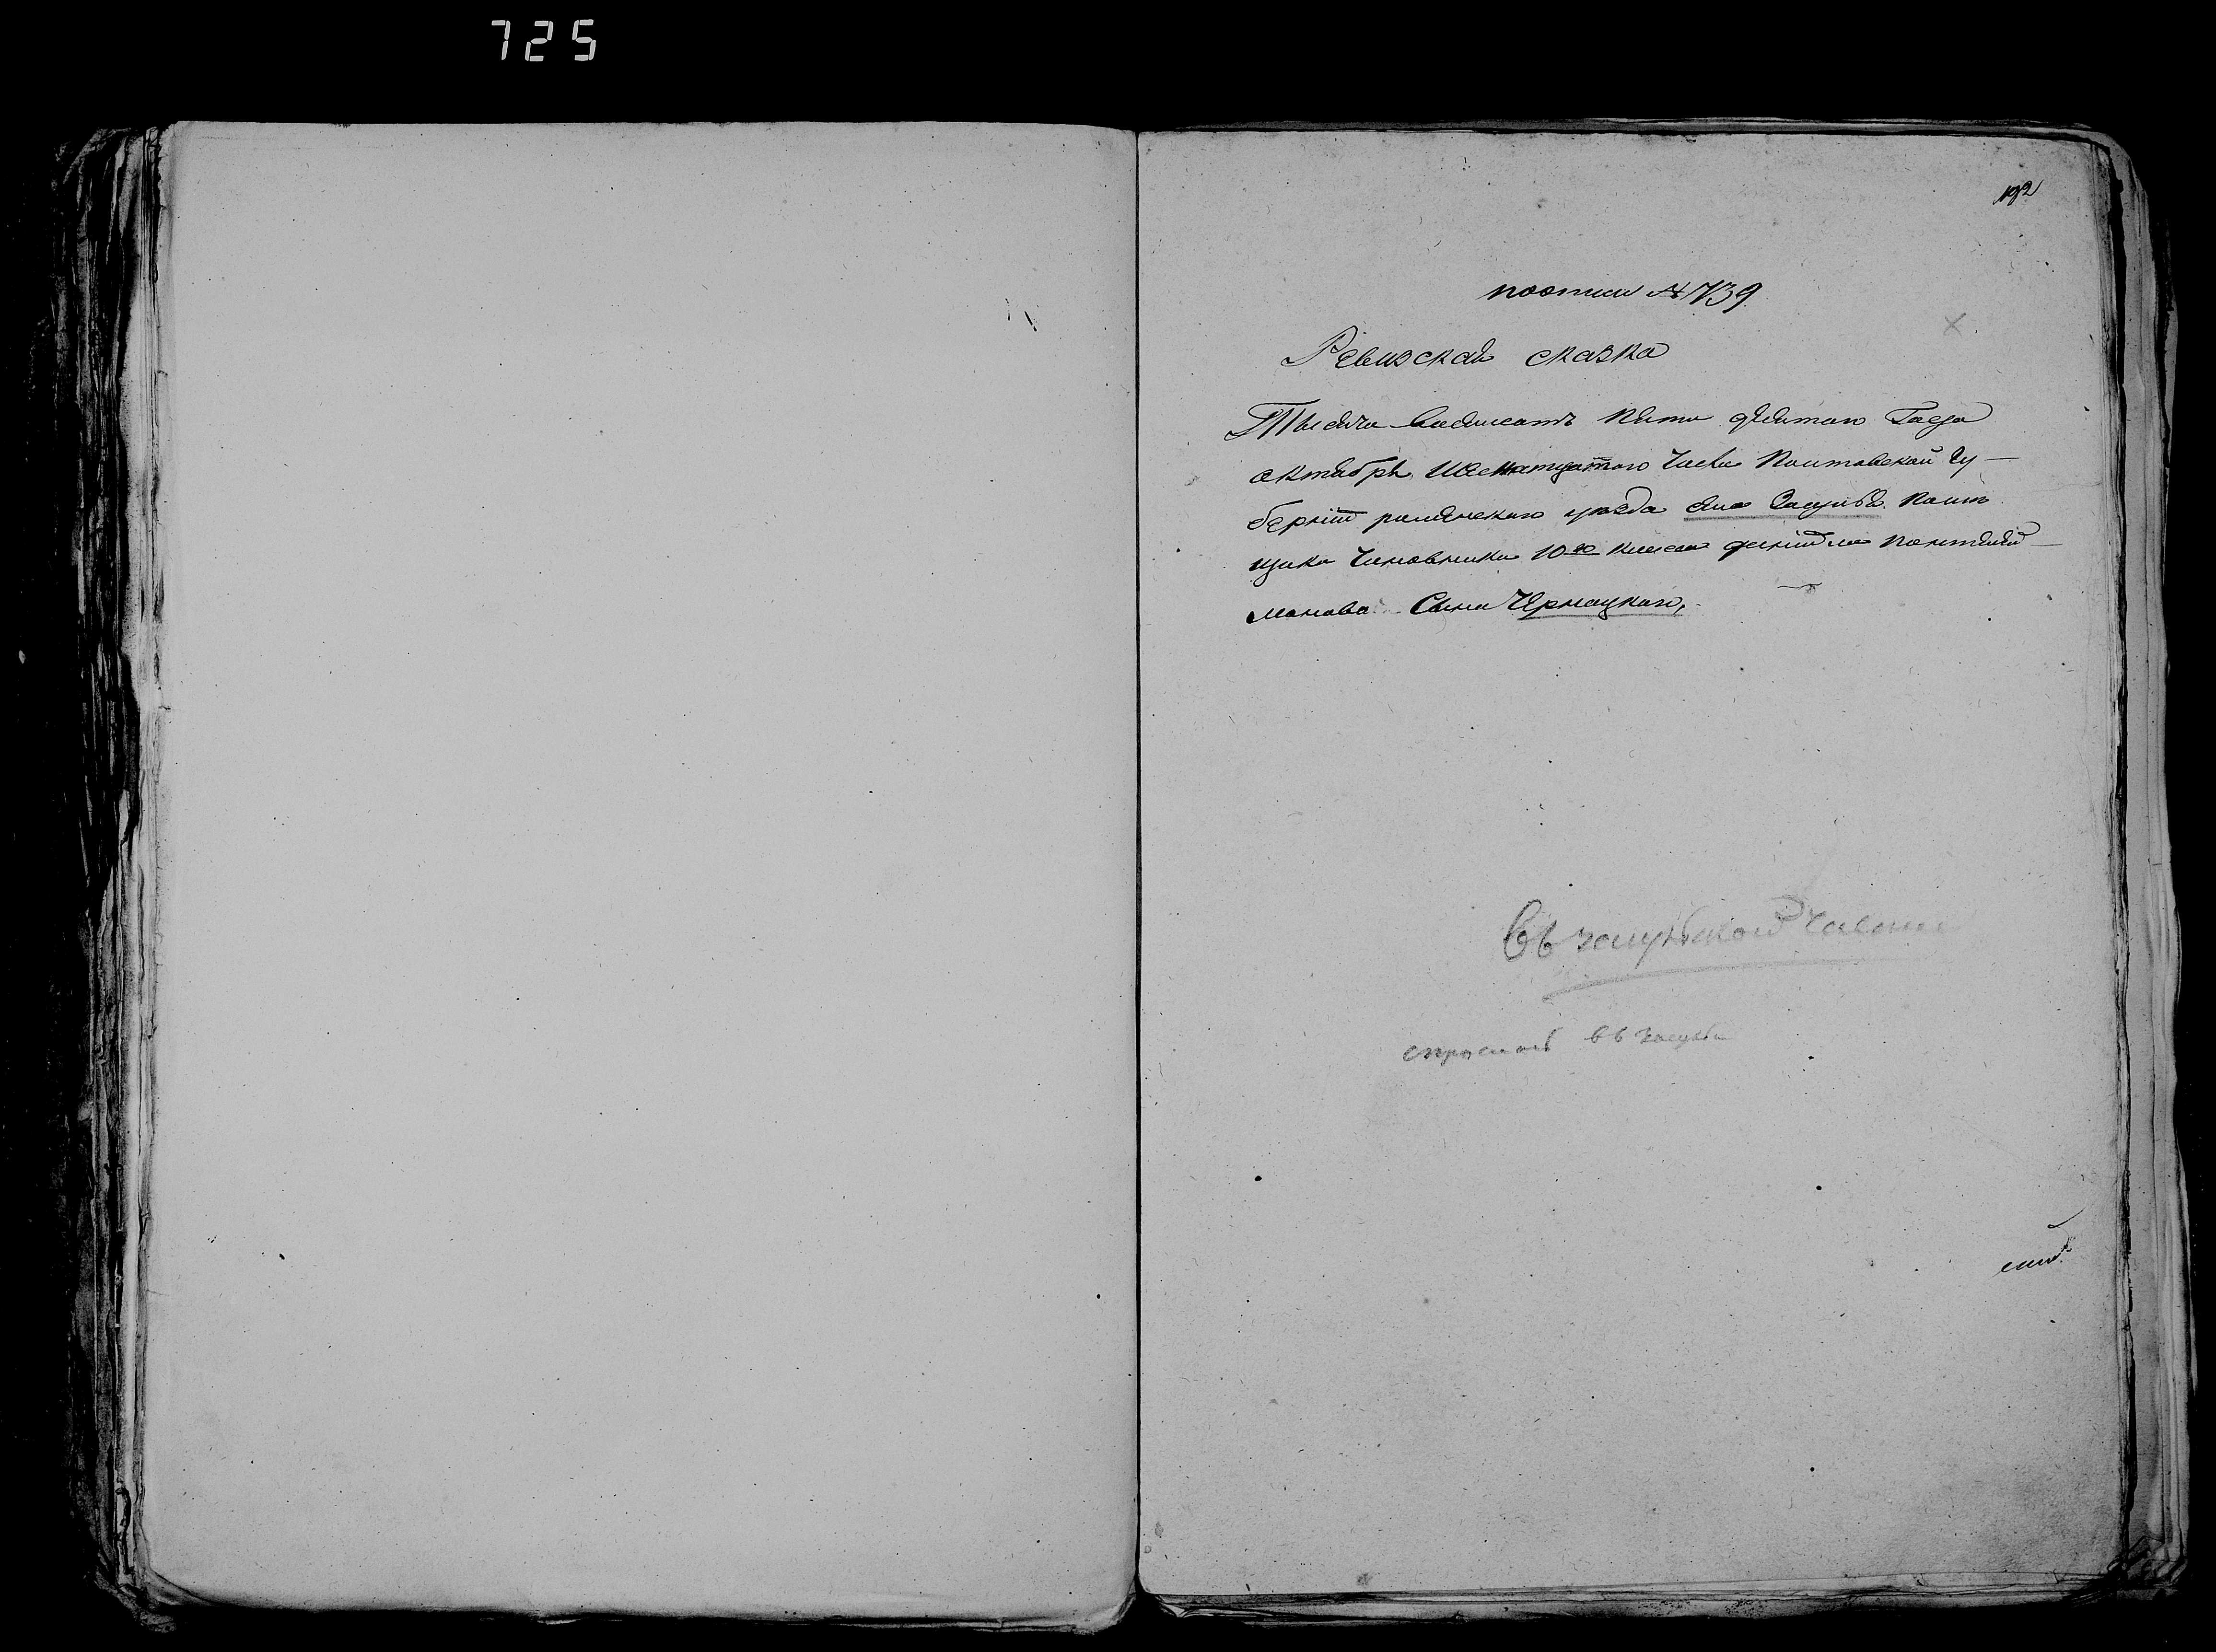 725
192
по описи № 739.
Ревизская сказка
Тысяча восемсотъ пятидесятого Года
октября Шестнатцатого числа Полтавской Гу-
берніи роменского уезда села Засулья помѣ
щика Чиновника 10го класса
сына Чернецкого,
въ засульской части
въ Засульи